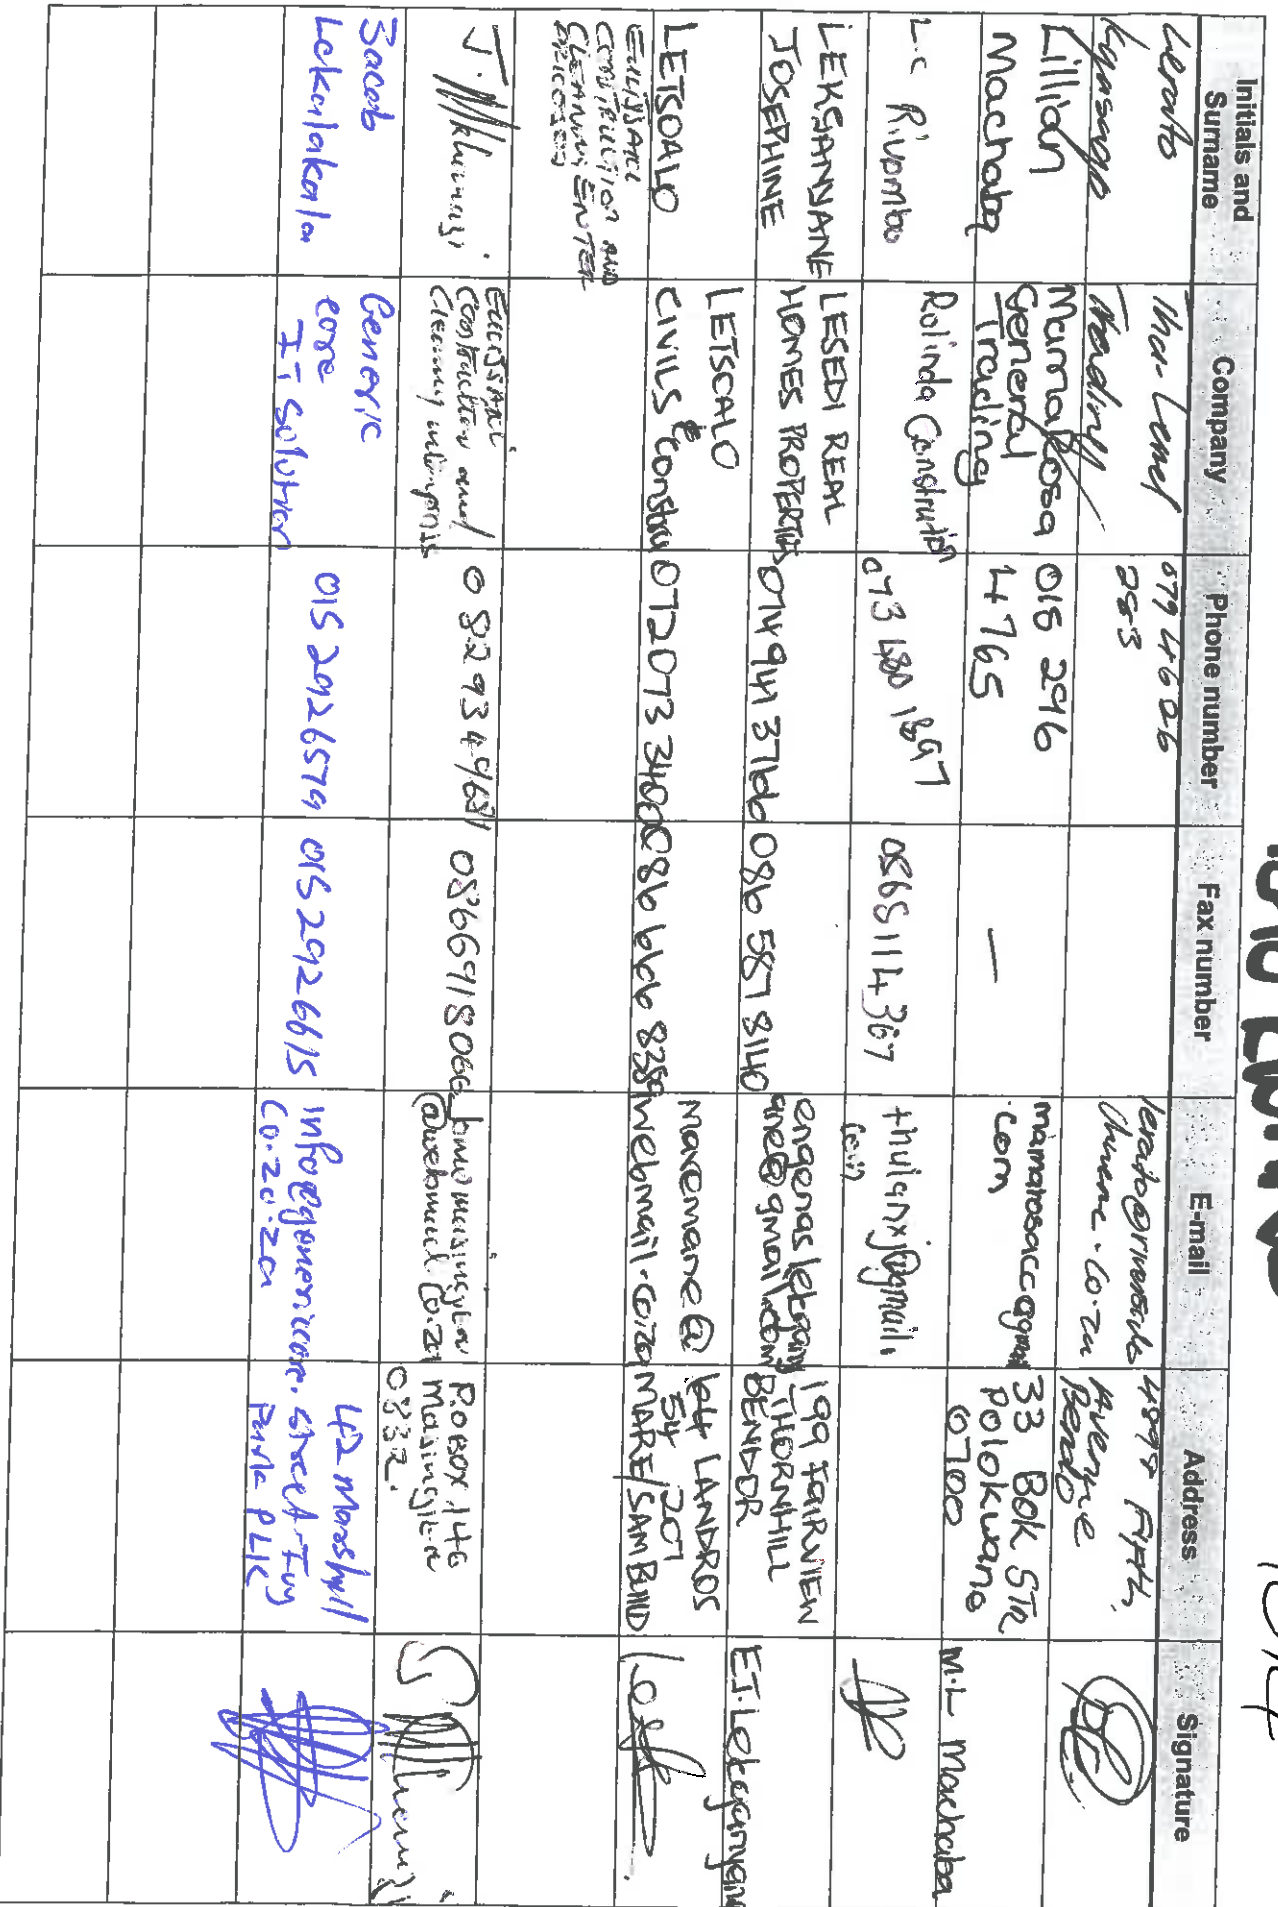 Initials and Surname
Company
Phone number
Fax number
E-mail
Address
Signature
Lerato
Trading
079 4626
283
Avenue
Lillian
Machaba
Mamarosa
General
Trading
015 296
4765
—
mamarosacc@gmail
.com
33 Bok STR
Polokwane
0700
M.L Machaba
L.C Rivombo
Rolinda Constrution
073 480 1897
0865114367
thulanxj@gmail.
com
LEKGANNANE
JOSEPHINE
LESEDI REAL
HOMES PROPERTIES
074 941 3766
086 587 8140
engenasletgany
ane@gmail.com
199 FAIRVIEW
THORNHILL
BENDOR
E.J. Lekganyane
LETSOALO
LETSOALO
CIVILS & Constru
072 073 3400
086 666 8359
Maremane@
webmail.co.za
64 LANDROS
54 207
MARE/SAMBUILD
CONSTRUCTION AND
CLEANING ENTER
PRICES
J.
Construction and
Cleaning
0829347681
0866918066
@webmail.co.za
P.O BOX 146
Masingita
0832.
Jacob
Lekalakala
Generic
core
IT Solution
015 2926579
015 2926615
info@genericcore.
co.za
42 Marshall
street Ivy
Park PLK